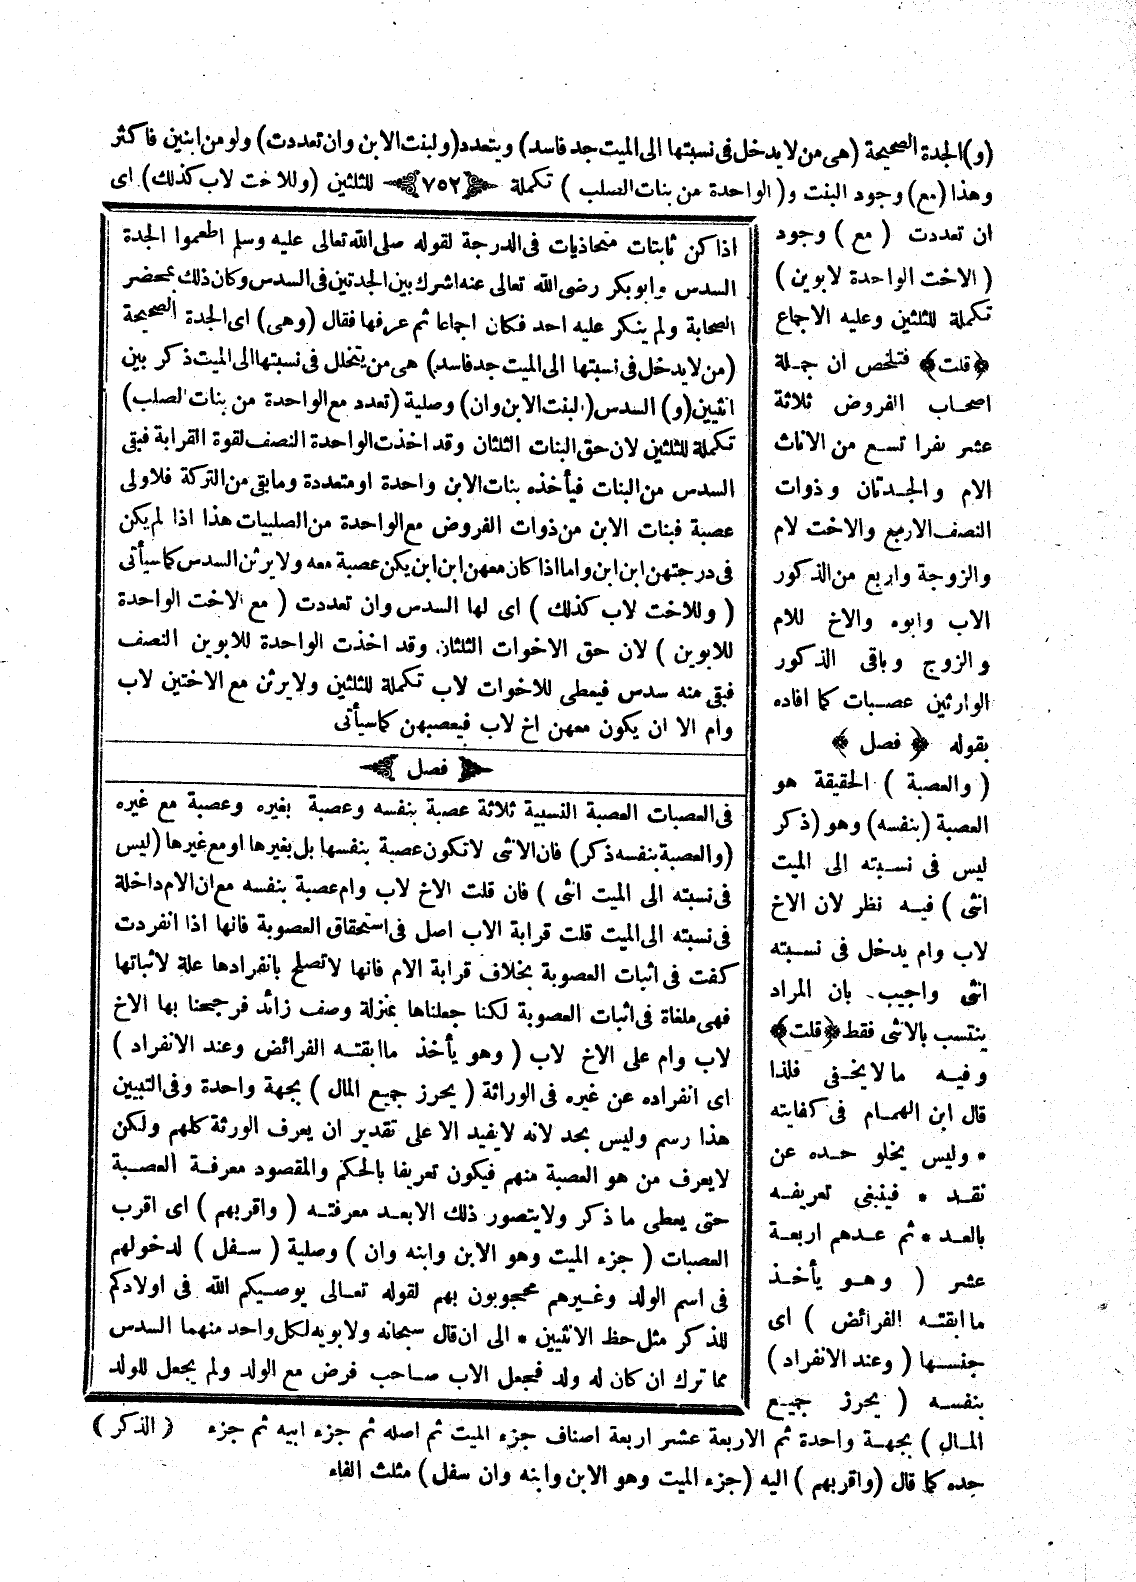 (و)الجدة الصحيحة (هى من لا يدخل فى نسبتها الى الميت جد فاسد) ويتعدد (ولبنت الابن وان تعددت) ولو من ابنين فاكثر
وهذا (مع) وجود البنت و( الواحدة من بنات الصلب ) تكملة ﴿٧٥٢﴾ للثلثين (وللاخت لاب كذلك) اى
ان تعددت ( مع ) وجود
( الاخت الواحدة لابوين )
تكملة للثلثين وعليه الاجماع
﴿قلت﴾ فتلخص ان جملة
اصحاب الفروض ثلاثة
عشر نفرا تسع من الاناث
الام والجدتان وذوات
النصف الاربع والاخت لام
والزوجة واربع من الذكور
الاب وابوه والاخ للام
والزوج وباقى الذكور
الوارثين عصبات كما افاده
بقوله ﴿ فصل ﴾
( والعصبة ) الحقيقة هو
العصبة (بنفسه) وهو (ذكر
ليس فى نسبته الى الميت
انثى ) فيه نظر لان الاخ
لاب وام يدخل فى نسبته
انثى واجيب بان المراد
ينتسب بالانثى فقط ﴿قلت﴾
وفيه مالايخفى فلذا
قال ابن الهمام فى كفايته
* وليس يخلو حده عن
نقد * فينبغى تعريفه
بالعد * ثم عدهم اربعة
عشر ( وهو يأخذ
ما ابقته الفرائض ) اى
جنسها ( وعند الانفراد )
بنفسه ( يحرز جميع
المال ) بجهة واحدة ثم الاربعة عشر اربعة اصناف جزء الميت ثم اصله ثم جزء ابيه ثم جزء
جده كما قال (واقربهم ) اليه (جزء الميت وهو الابن وابنه وان سفل) مثلث الفاء
اذا كن ثابتات متحاذيات فى الدرجة لقوله صلى الله تعالى عليه وسلم اطعموا الجدة
السدس وابوبكر رضى الله تعالى عنه اشرك بين الجدتين فى السدس وكان ذلك بمحضر
الصحابة ولم ينكر عليه احد فكان اجماعا ثم عرفها فقال (وهى) اى الجدة الصحيحة
(من لا يدخل فى نسبتها الى الميت جد فاسد) هى من يتخلل فى نسبتها الى الميت ذكر بين
انثيين (و) السدس (لبنت الابن وان) وصلية (تعدد مع الواحدة من بنات الصلب)
تكملة للثلثين لان حق البنات الثلثان وقد اخذت الواحدة النصف لقوة القرابة فبقى
السدس من البنات فيأخذه بنات الابن واحدة او متعددة ومابقى من التركة فلاولى
عصبة فبنات الابن من ذوات الفروض مع الواحدة من الصلبيات هذا اذا لم يكن
فى درجتهن ابن ابن واما اذا كان معهن ابن ابن يكن عصبة معه ولا يرثن السدس كما سيأتى
( وللاخت لاب كذلك ) اى لها السدس وان تعددت ( مع الاخت الواحدة
للابوين ) لان حق الاخوات الثلثان وقد اخذت الواحدة للابوين النصف
فبقى منه سدس فيعطى للاخوات لاب تكملة للثلثين ولايرثن مع الاختين لاب
وام الا ان يكون معهن اخ لاب فيعصبهن كما سيأتى
﴿ فصل ﴾
فى العصبات العصبة النسبية ثلاثة عصبة بنفسه وعصبة بغيره وعصبة مع غيره
(والعصبة بنفسه ذكر) فان الانثى لاتكون عصبة بنفسها بل بغيرها او مع غيرها (ليس
فى نسبته الى الميت انثى ) فان قلت الاخ لاب وام عصبة بنفسه مع ان الام داخلة
فى نسبته الى الميت قلت قرابة الاب اصل فى استحقاق العصوبة فانها اذا انفردت
كفت فى اثبات العصوبة بخلاف قرابة الام فانها لاتصلح بانفرادها علة لاثباتها
فهى ملغاة فى اثبات العصوبة لكنا جعلناها بمنزلة وصف زائد فرجحنا بها الاخ
لاب وام على الاخ لاب ( وهو يأخذ ماابقته الفرائض وعند الانفراد )
اى انفراده عن غيره فى الوراثة ( يحرز جميع المال ) بجهة واحدة وفى التبيين
هذا رسم وليس بحد لانه لايفيد الا على تقدير ان يعرف الورثة كلهم ولكن
لايعرف من هو العصبة منهم فيكون تعريفا بالحكم والمقصود معرفة العصبة
حتى يعطى ما ذكر ولايتصور ذلك الابعد معرفته ( واقربهم ) اى اقرب
العصبات ( جزء الميت وهو الابن وابنه وان ) وصلية ( سفل ) لدخولهم
فى اسم الولد وغيرهم محجوبون بهم لقوله تعالى يوصيكم الله فى اولادكم
للذكر مثل حظ الانثيين * الى ان قال سبحانه ولابويه لكل واحد منهما السدس
مما ترك ان كان له ولد فجعل الاب صاحب فرض مع الولد ولم يجعل للولد
( الذكر )